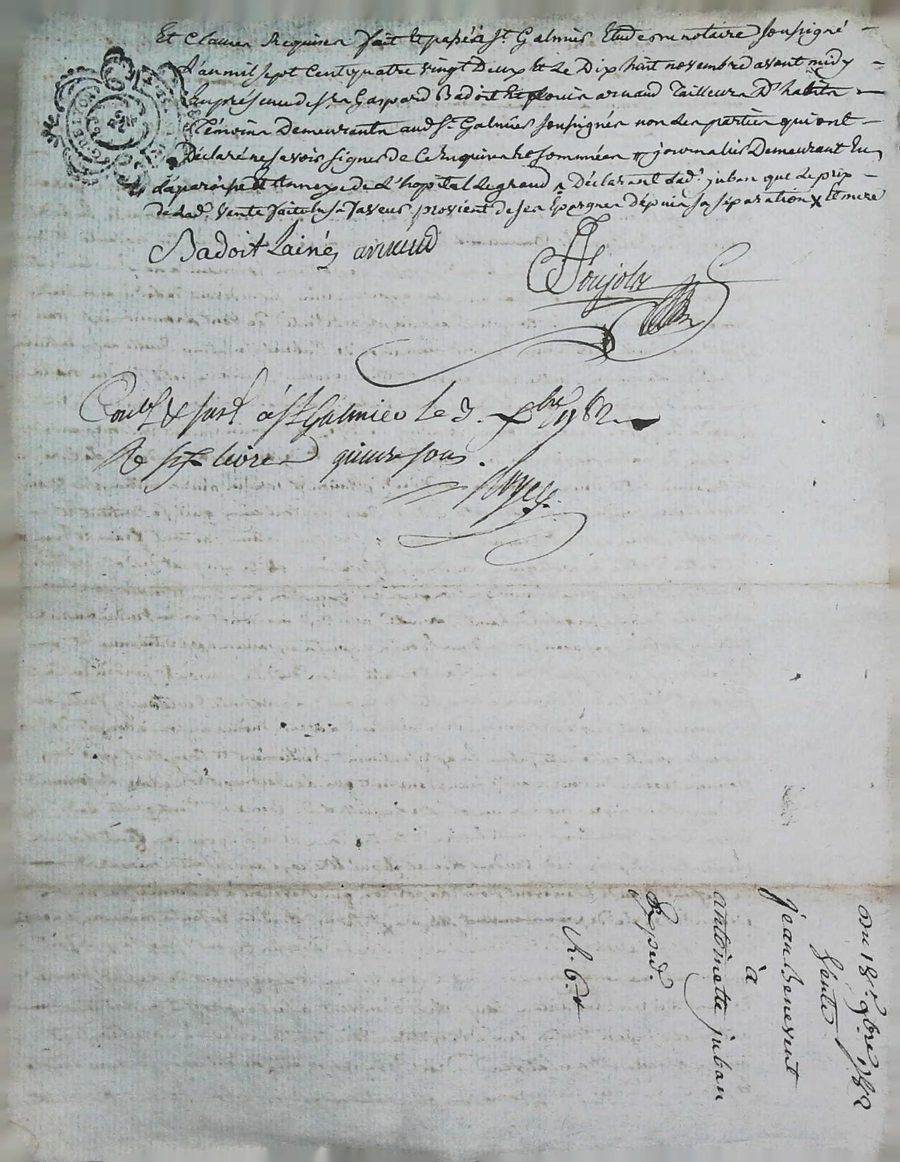 Et Clauses Requises fait et passé a St. Galmier Etude du notaire soussigné
L'an mil sept cent quatre vingt Deux et Le Dix huit novembre avant midy
En présence de sr. Gaspard Badoit Et Louis arnaud Tailleur D'habits
Témoins Demeurants aud. St. Galmier soussignés non Les parties qui ont
Déclaré ne savoir signer de ce Enquises et sommées journalier Demeurant En
La paroisse et Annexe de L'hopital Le grand Déclarant lad. juban que Le prix
de lad. vente faite en sa faveur provient de ses Epargnes Depuis sa séparation
Badoit Lainé arnaud
Poujols
Con.lé & scel. à St Galmier le 3. xbre 1782
Rs sept livres quinze sous.
Du 18e. 9bre 1782
Vente
jean Benevent
à
antoinette juban
Exped.
R. 6.